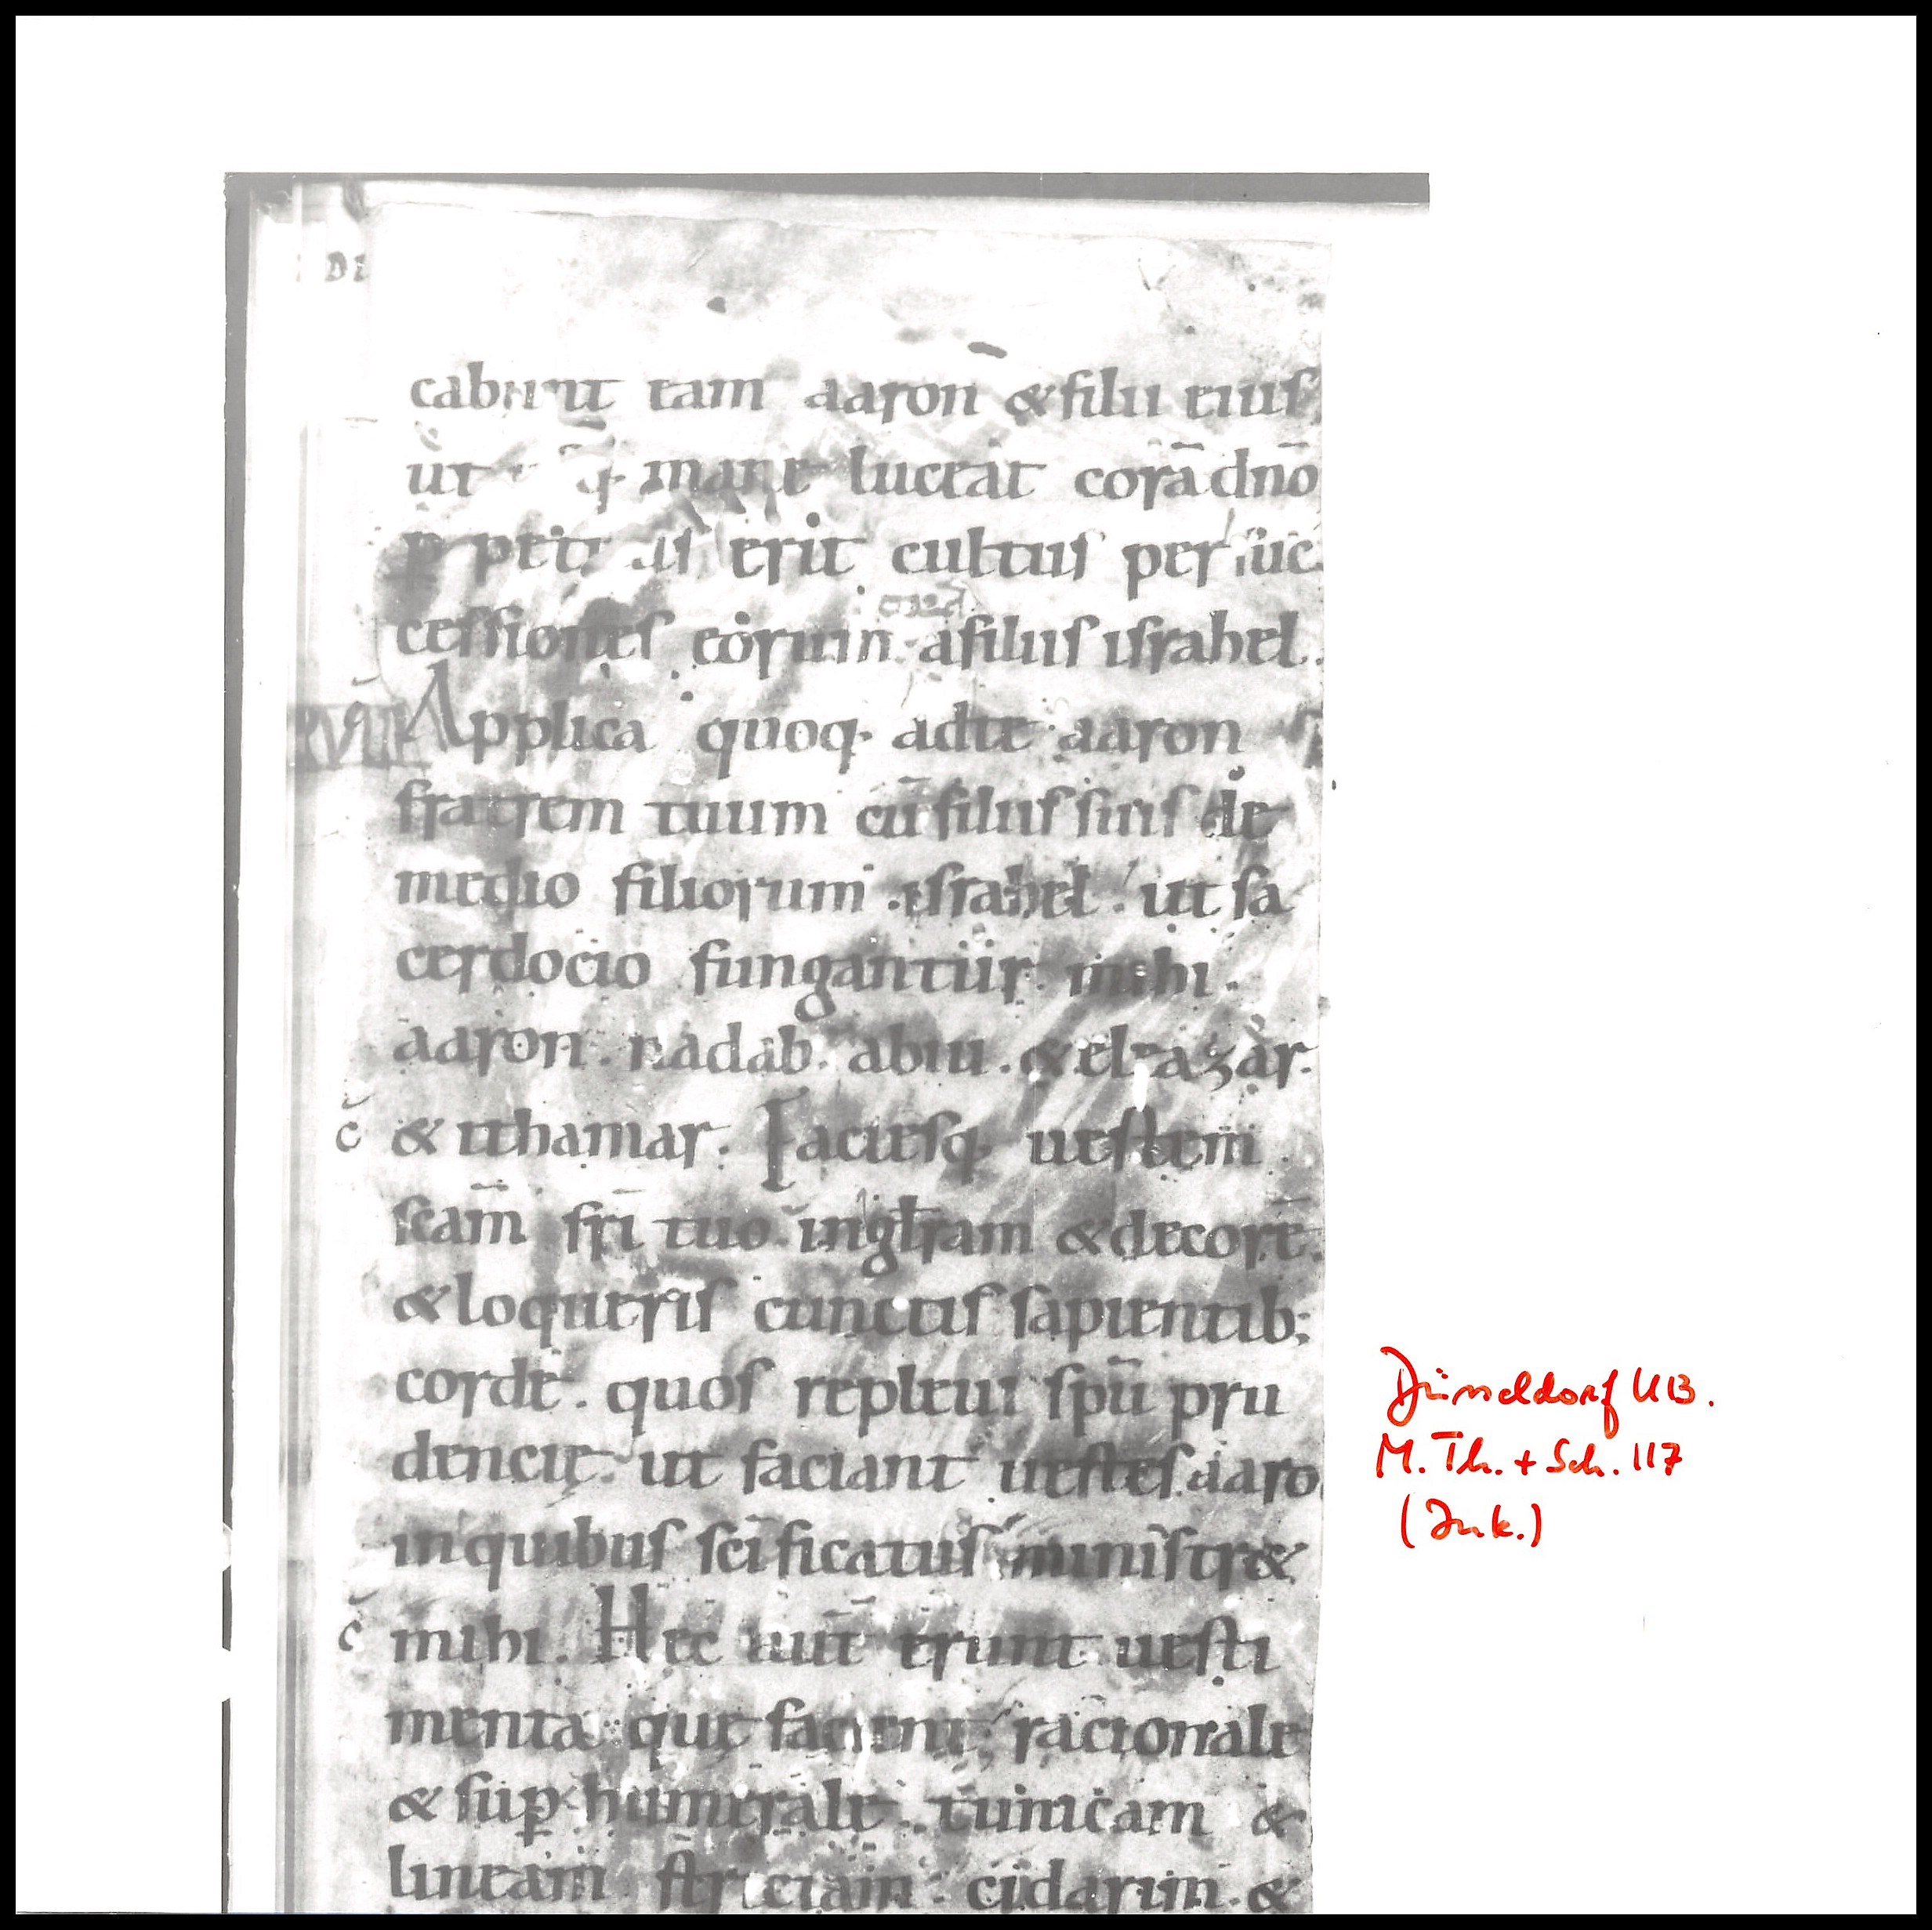 cabunt eam aaron & filii eius
ut q; mane luceat corā dnō
erit cultus per suc
cessiones eorum. a filiis israhel.
Applica quoq; ad te aaron
fratrem tuum cū filiis suis de
medio filiorum israhel. ut sa
cerdocio fungantur mihi.
aaron. nadab. abiu. & eleazar.
c̆ & ithamar. Faciesq; uestem
scām frī tuo. in glīam & decorē.
& loqueris cunctis sapientib;
corde. quos repleui spū pru
dencię. ut faciant uestes aaro
in quibus scīficatus ministr&
c̆ mihi. Hec aut̄ erunt uesti
menta quę facient, racionale
& sup humerale. tunicam &
lineam strictam. cidarim. &
Düsseldorf UB.
M. Th. + Sch. 117
(Ink.)